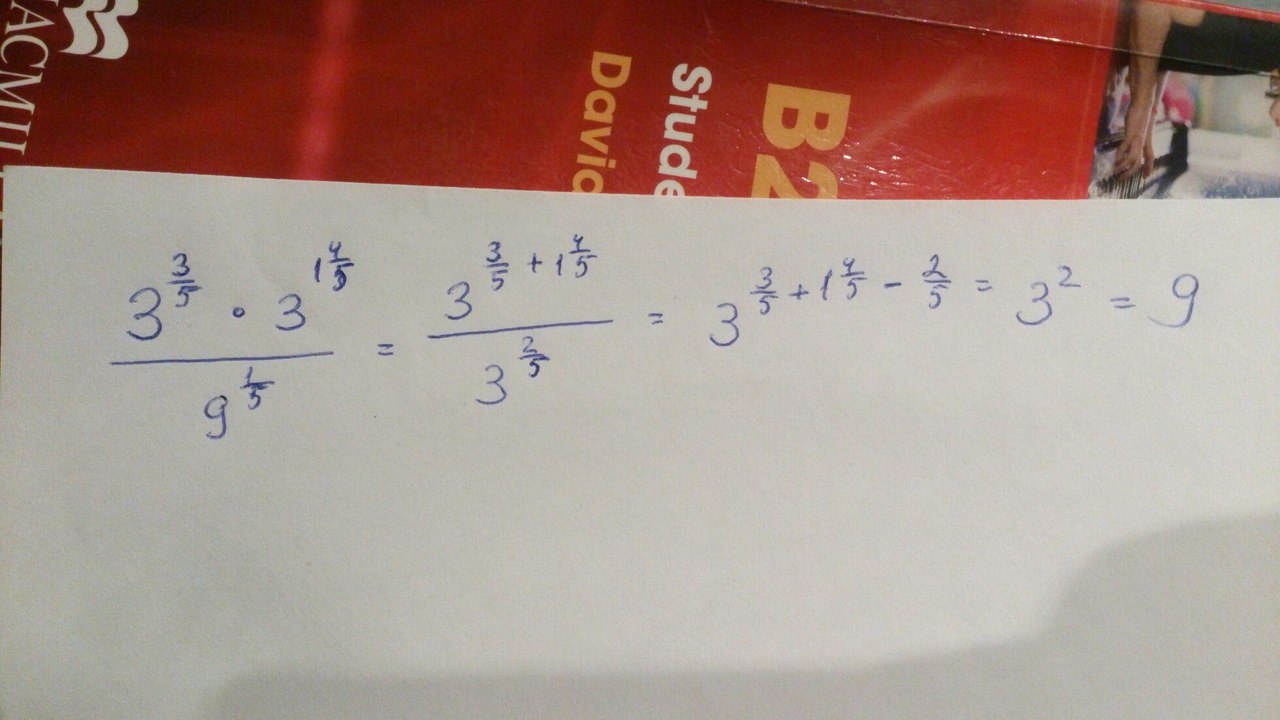 MACMILL
B2
Stude
David
3^{\frac{3}{5}} \cdot 3^{1\frac{4}{5}} / 9^{\frac{1}{5}} = 3^{\frac{3}{5} + 1\frac{4}{5}} / 3^{\frac{2}{5}} = 3^{\frac{3}{5} + 1\frac{4}{5} - \frac{2}{5}} = 3^2 = 9